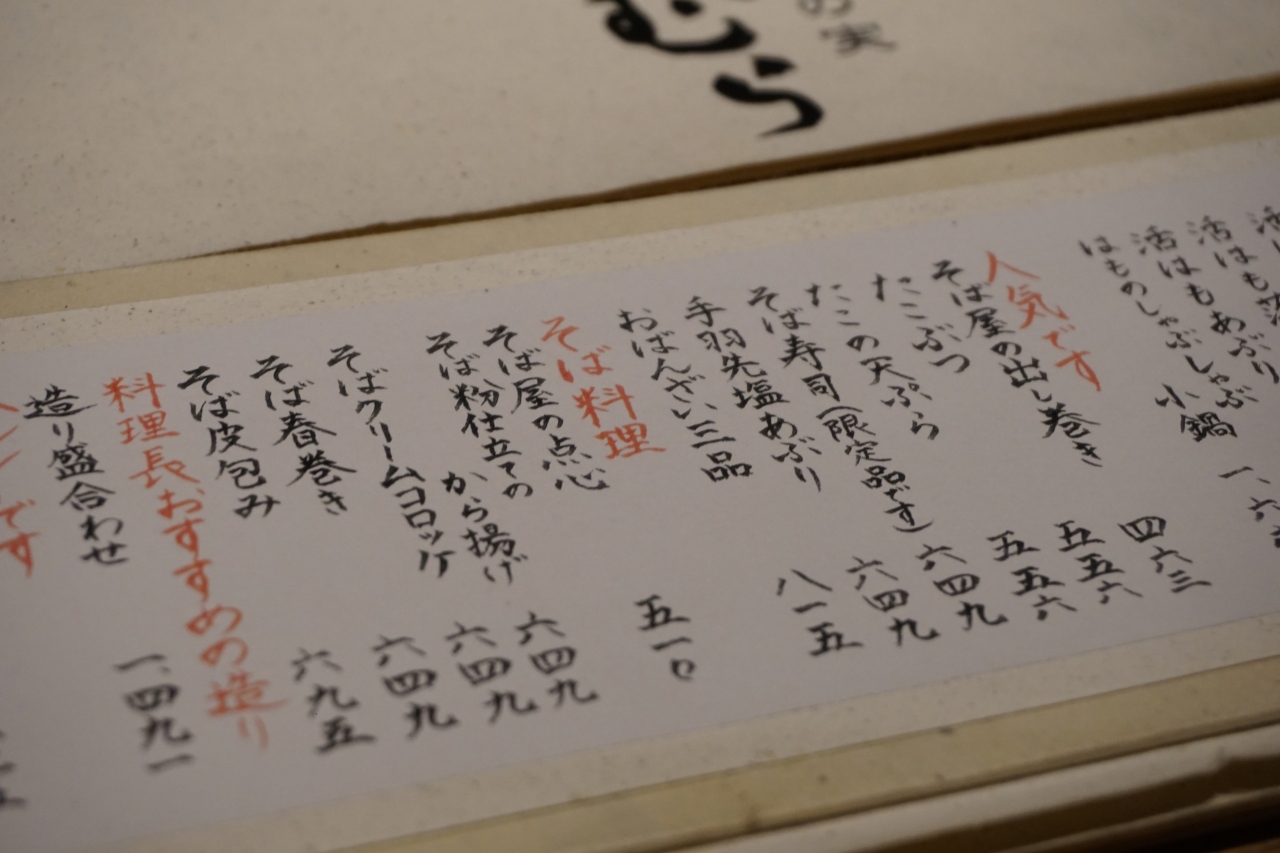 の実
むら
活はもあぶり
はものしゃぶしゃぶ 小鍋
人気です
そば屋の出し巻き 四六三
たこぶつ 五五六
たこの天ぷら 五五六
そば寿司(限定品です) 六四九
手羽先塩あぶり 六四九
おばんざい三品 八一五
そば料理
そば屋の点心 五一〇
そば粉仕立ての
から揚げ 六四九
そばクリームコロッケ 六四九
そば春巻き 六四九
そば皮包み 六九五
料理長おすすめの造り
造り盛合わせ 一、四九一
です